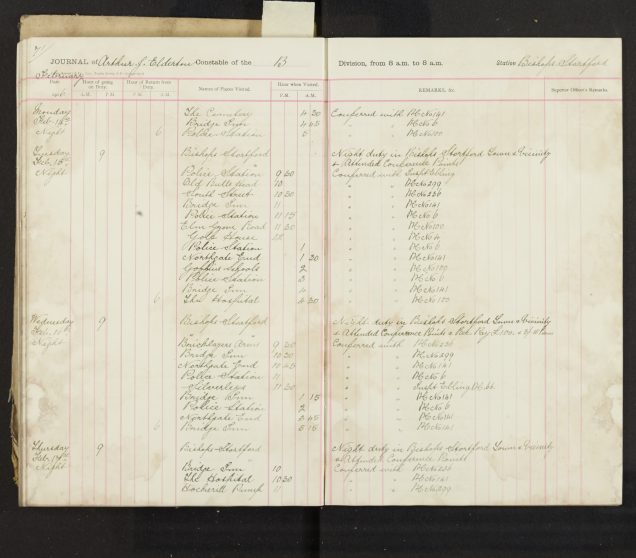 JOURNAL of Arthur J. Elderton Constable of the B Division, from 8 a.m. to 8 a.m. Station Bishops Stortford
February
Date Hour of going on Duty. Hour of Return from Duty. Names of Places Visited. Hour when Visited. REMARKS, &c. Superior Officer's Remarks.
A.M. P.M. A.M. P.M. P.M. A.M.
Monday The Cemetery 4 30 Conferred with PC No 141
Feb. 14th Bridge Inn 4 45 " " PC No 6
Night 6 Police Station 5 " " PC No 100
Tuesday 9 Bishops Stortford Night duty in Bishops Stortford Town & Vicinity
Feb. 15th " & Attended Conference Points
Night Police Station 9 30 Conferred with Inspt Ebling
Old Butts Road 10 " " PC No 299
South Street 10 30 " " PC No 236
Bridge Inn 11 " " PC No 141
Police Station 11 15 " " PC No 6
Elm Grove Road 11 30 " " PC No 100
12 " " PC No
Police Station 1 " " PC No 6
Northgate End 1 30 " " PC No 141
Schools 2 " " PC No 100
Police Station 3 " " PC No 6
Bridge Inn 4 " " PC No 141
6 The Hospital 4 30 " " PC No 100
Wednesday 9 Bishops Stortford Night duty in Bishops Stortford Town & Vicinity
Feb. 16th " & Attended Conference Points
Night Bricklayers Arms 9 30 Conferred with PC No 236
Bridge Inn 10 30 " " PC No 299
Northgate End 10 45 " " PC No 141
Police Station 11 " " PC No 6
Silverleys 11 30 " " Inspt Ebling
Bridge Inn 1 15 " " PC No 141
Police Station 2 " " PC No 6
Northgate End 2 45 " " PC No 141
6 Bridge Inn 5 15 " " PC No 141
Thursday 9 Bishops Stortford Night duty in Bishops Stortford Town & Vicinity
Feb. 17th " & Attended Conference Points
Night Bridge Inn 10 Conferred with PC No 236
The Hospital 10 30 " " PC No 141
Hockerill Pump 11 " " PC No 299